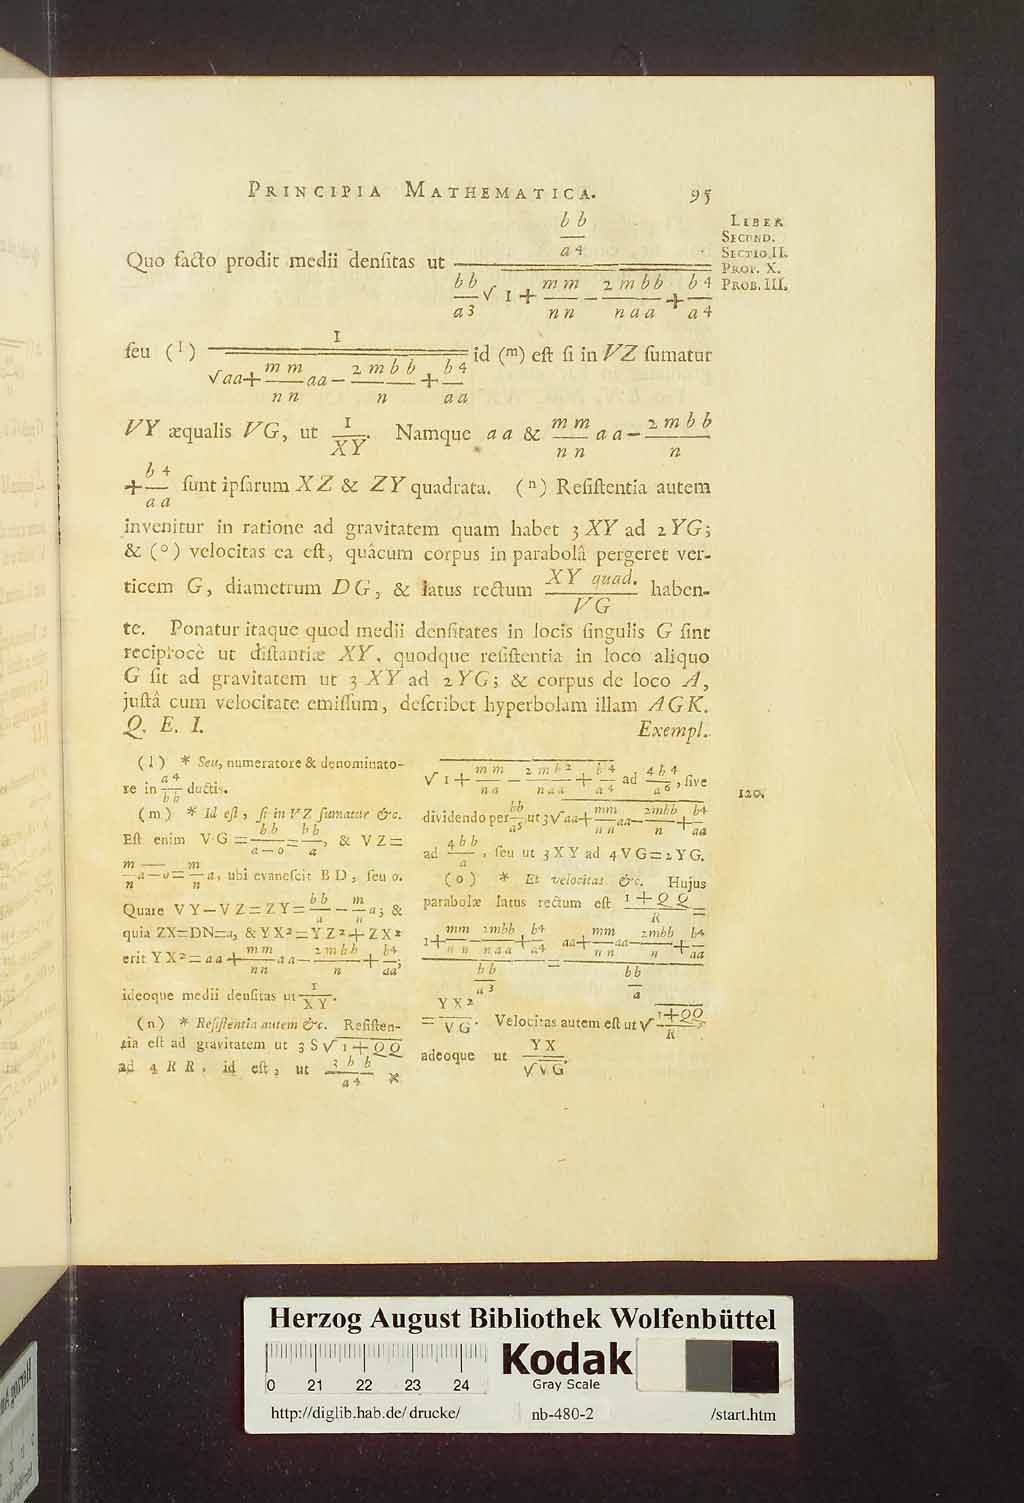 PRINCIPIA MATHEMATICA. 95
LIBER
SECUND.
SECTIO II.
PROP. X.
PROB. III.
Quo facto prodit medii densitas ut (bb/a4) / (bb/a3 √ 1 + mm/nn − 2mbb/naa + b4/a4)
seu (l) 1 / (√ aa + mm/nn aa − 2mbb/n + b4/aa) id (m) est si in VZ sumatur
VY æqualis VG, ut 1/XY. Namque aa & mm/nn aa − 2mbb/n
+ b4/aa sunt ipsarum XZ & ZY quadrata. (n) Resistentia autem
invenitur in ratione ad gravitatem quam habet 3 XY ad 2 YG;
& (o) velocitas ea est, quâcum corpus in parabolâ pergeret ver-
ticem G, diametrum DG, & latus rectum XY quad./VG haben-
te. Ponatur itaque quod medii densitates in locis singulis G sint
reciprocè ut distantiæ XY, quodque resistentia in loco aliquo
G sit ad gravitatem ut 3 XY ad 2 YG; & corpus de loco A,
justâ cum velocitate emissum, describet hyperbolam illam AGK.
Q. E. I.
Exempl.
(l) * Seu, numeratore & denominato-
re in a4/bb ductis.
(m) * Id est, si in VZ sumatur &c.
Est enim VG = bb/a−o = bb/a, & VZ =
m/n a − o = m/n a, ubi evanescit BD, seu o.
Quare VY − VZ = ZY = bb/a − m/n a; &
quia ZX = DN = a, & YX2 = YZ2 + ZX2
erit YX2 = aa + mm/nn aa − 2mbb/n + b4/aa;
ideoque medii densitas ut 1/XY.
(n) * Resistentia autem &c. Resisten-
tia est ad gravitatem ut 3 S √ 1 + QQ
ad 4 RR, id est, ut 3bb/a4 ×
√ 1 + mm/nn − 2mb2/naa + b4/a4 ad 4b4/a6, sive
dividendo per bb/a5, ut 3 √ aa + mm/nn aa − 2mbb/n + b4/aa
ad 4bb/a, seu ut 3 XY ad 4 VG = 2 YG.
(o) * Et velocitas &c. Hujus
parabolæ latus rectum est 1 + QQ/R =
(1 + mm/nn − 2mbb/naa + b4/a4) / (bb/a3) = (aa + mm/nn aa − 2mbb/n + b4/aa) / (bb/a)
= YX2/VG. Velocitas autem est ut √ 1+QQ/R,
adeoque ut YX/√VG.
120.
Herzog August Bibliothek Wolfenbüttel
Kodak
Gray Scale
0 21 22 23 24
http://diglib.hab.de/drucke/ nb-480-2 /start.htm